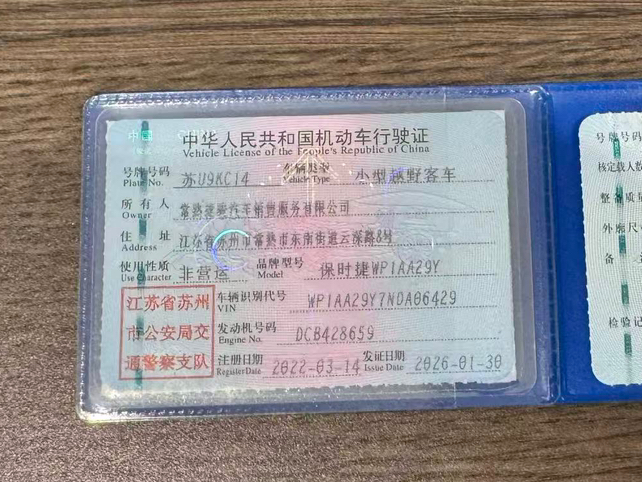 中国
中华人民共和国机动车行驶证
Vehicle License of the People's Republic of China
号牌号码 苏U9KC14 车辆类型 小型越野客车
Plate No. Vehicle Type
所有人 常熟捷驰汽车销售服务有限公司
Owner
住址 江苏省苏州市常熟市东南街道云深路8号
Address
使用性质 非营运 品牌型号 保时捷WP1AA29Y
Use Character Model
江苏省苏州 车辆识别代号 WP1AA29Y7NDA06429
VIN
市公安局交 发动机号码 DCB428659
Engine No.
通警察支队 注册日期 2022-03-14 发证日期 2026-01-30
Register Date Issue Date
号牌号码
核定载人数
整备质量
外廓尺寸
备
检验记